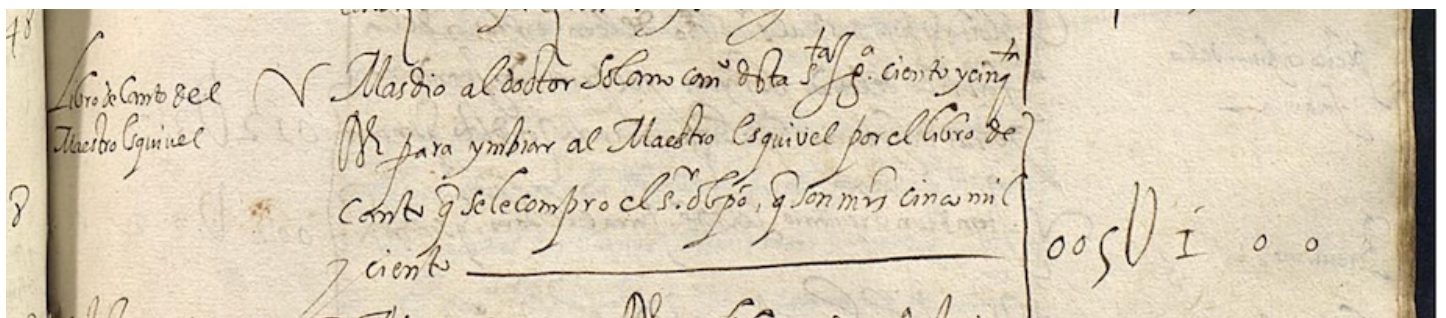 Libro de Canto del
Maestro Esquivel
V Mas dio al doctor Solano can.º desta s.ta Ig.ª ciento y cinq.ta
R para ymbiar al Maestro Esquivel por el libro de
Canto q̃ se le compro el s.r obpo, q̃ son mrs cinco mil
y ciento
005U100